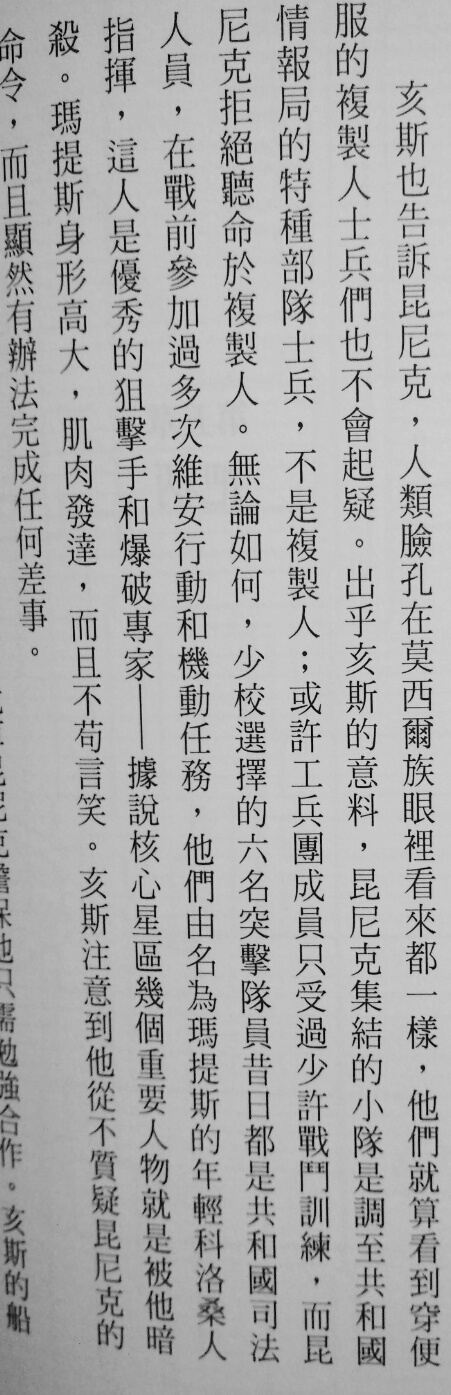 亥斯也告訴昆尼克，人類臉孔在莫西爾族眼裡看來都一樣，他們就算看到穿便
服的複製人士兵們也不會起疑。出乎亥斯的意料，昆尼克集結的小隊是調至共和國
情報局的特種部隊士兵，不是複製人；或許工兵團成員只受過少許戰鬥訓練，而昆
尼克拒絕聽命於複製人。無論如何，少校選擇的六名突擊隊員昔日都是共和國司法
人員，在戰前參加過多次維安行動和機動任務，他們由名為瑪提斯的年輕科洛桑人
指揮，這人是優秀的狙擊手和爆破專家——據說核心星區幾個重要人物就是被他暗
殺。瑪提斯身形高大，肌肉發達，而且不苟言笑。亥斯注意到他從不質疑昆尼克的
命令，而且顯然有辦法完成任何差事。
昆尼克擔保他只需勉強合作。亥斯的船